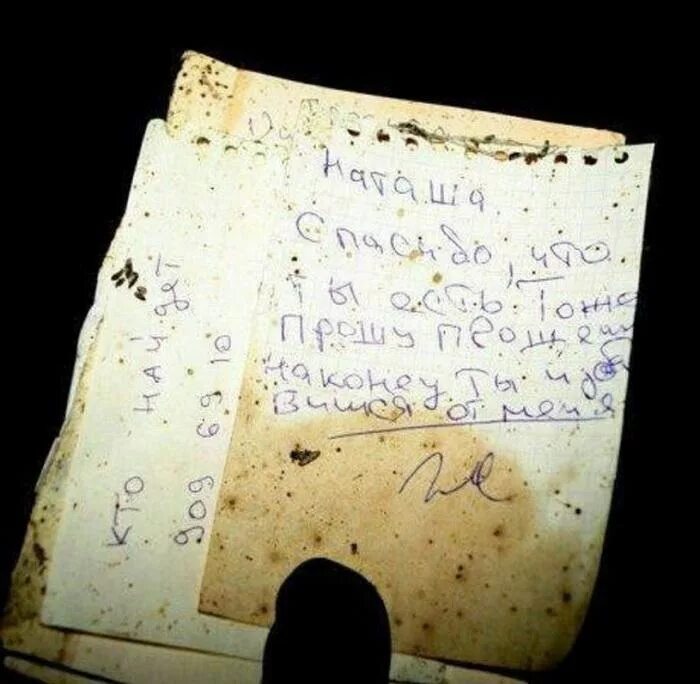 Наташа
Спасибо, что
Ты есть Тоже
Прошу прощени
наконец Ты изба
Вишся от меня
кто найдет
909 69 10